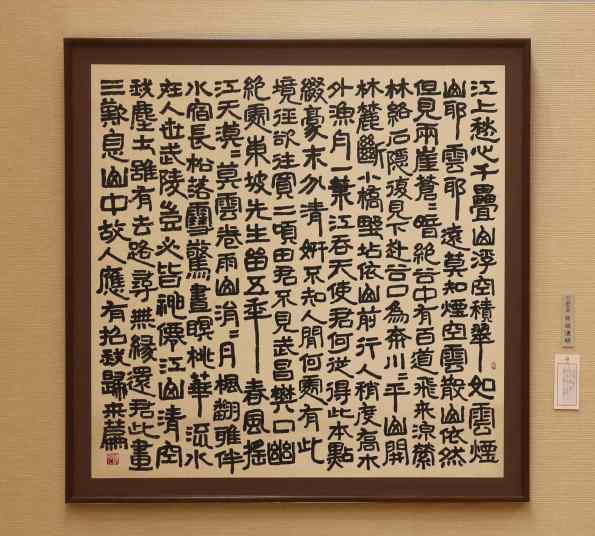 江上愁心千疊山浮空積翠如雲煙
山耶雲耶遠莫知煙空雲散山依然
但見兩崖蒼〻暗絕谷中有百道飛來泉縈
林絡石隱復見下赴谷口為奔川〻平山開
林麓斷小橋野店依山前行人稍度喬木
外漁舟一葉江吞天使君何從得此本點
綴豪末分清妍不知人間何處有此
境徑欲往買二頃田君不見武昌樊口幽
絕處東坡先生留五年春風搖
江天漠〻莫雲卷雨山涓〻丹楓翻雅伴
水宿長松落雪驚晝瞑桃華流水
在人世武陵豈必皆神僊江山清空
我塵土雖有去路尋無緣還君此畫
三歎息山中故人應有招我歸來篇